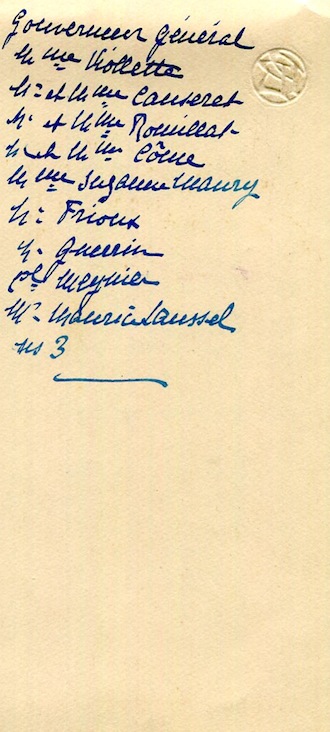 Gouverneur Général
Mme Viollette
Mr et Mme Causeret
Mr et Mme Rouillat
Mr et Mme Côme
Mme Suzanne Maury
Mr Frioux
Mr Guerrin
Col Meynier
Mr Maurice Laussel
ns 3